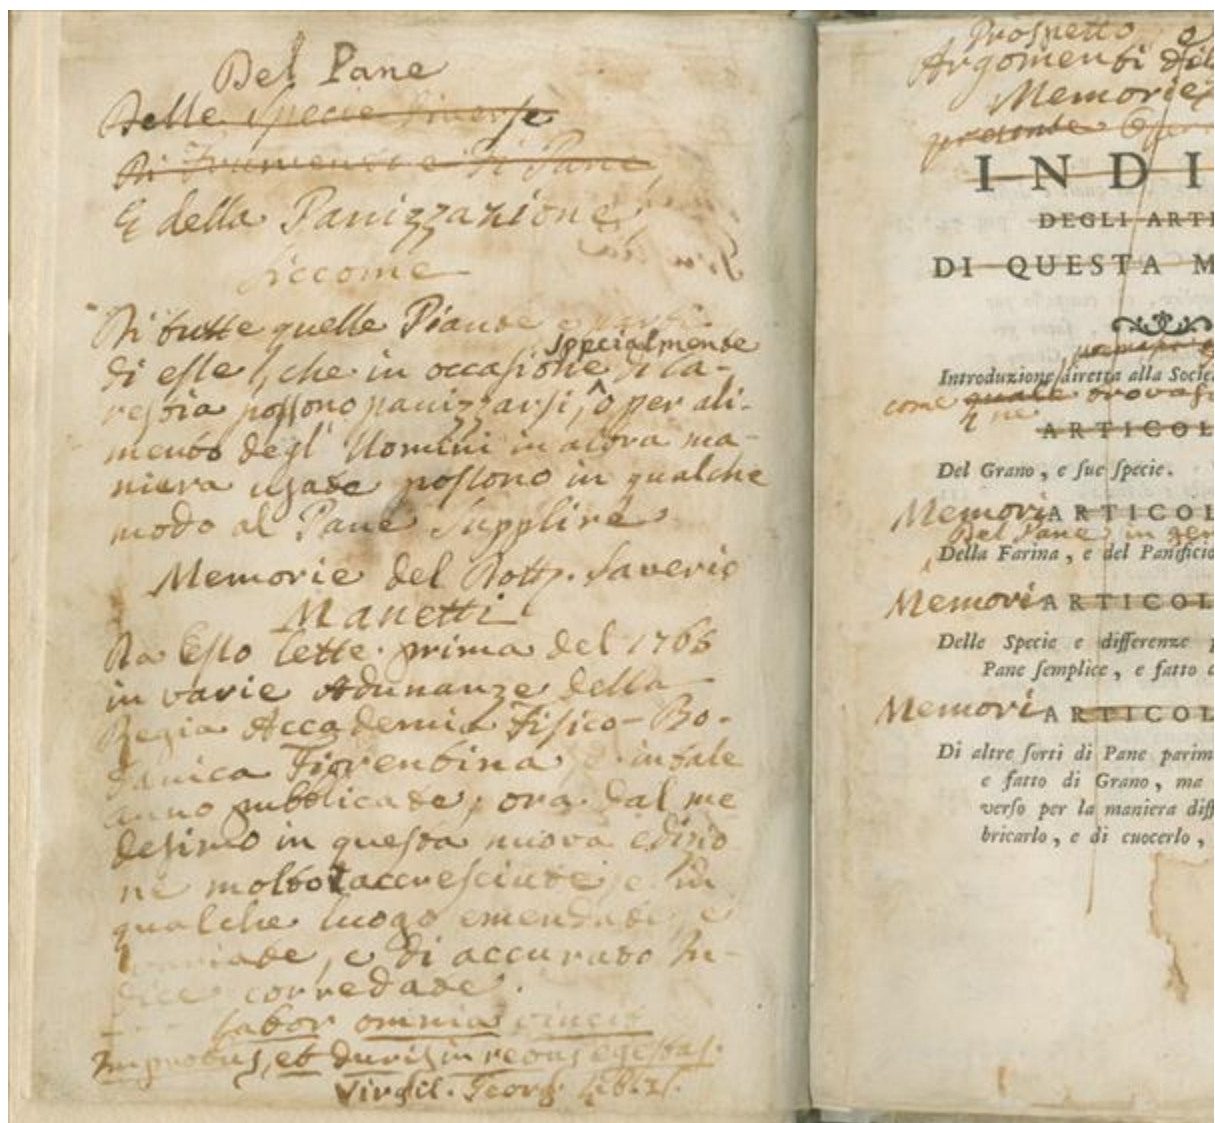 Del Pane
Delle specie diverse
Di Frumento e di Pane,
E della Panizzazione,
siccome
Di tutte quelle Piante e parti
specialmente
di esse, che in occasione di ca-
restia possono panizzarsi, o per ali-
mento degl' Uomini in altra ma-
niera usate possono in qualche
modo al Pane supplire
Memorie del Dott. Saverio
Manetti
Da Esso lette prima del 1765
in varie Adunanze della
Regia Accademia Fisico-Bo-
tanica Fiorentina e in tale
anno pubblicate, ora dal me
desimo in questa nuova edizio
ne molto accresciute, e in
qualche luogo emendate, e
variate, e di accurato In-
dice corredate.
Labor omnia vincit
Improbus, et duris in rebus egestas.
Virgil. Georg. Lib.
Prospetto o
Argomenti
Memorie
INDI
DEGLI ARTI
DI QUESTA M
Introduzione diretta alla Socie
come quale
ARTICOL
Del Grano, e sue specie.
Memori ARTICOL
Del Pane in gen
Della Farina, e del Panificio
Memori ARTICOL
Delle Specie e differenze
Pane semplice, e fatto
Memori ARTICOL
Di altre sorti di Pane parim
e fatto di Grano, ma
verso per la maniera diff
bricarlo, e di cuocerlo,